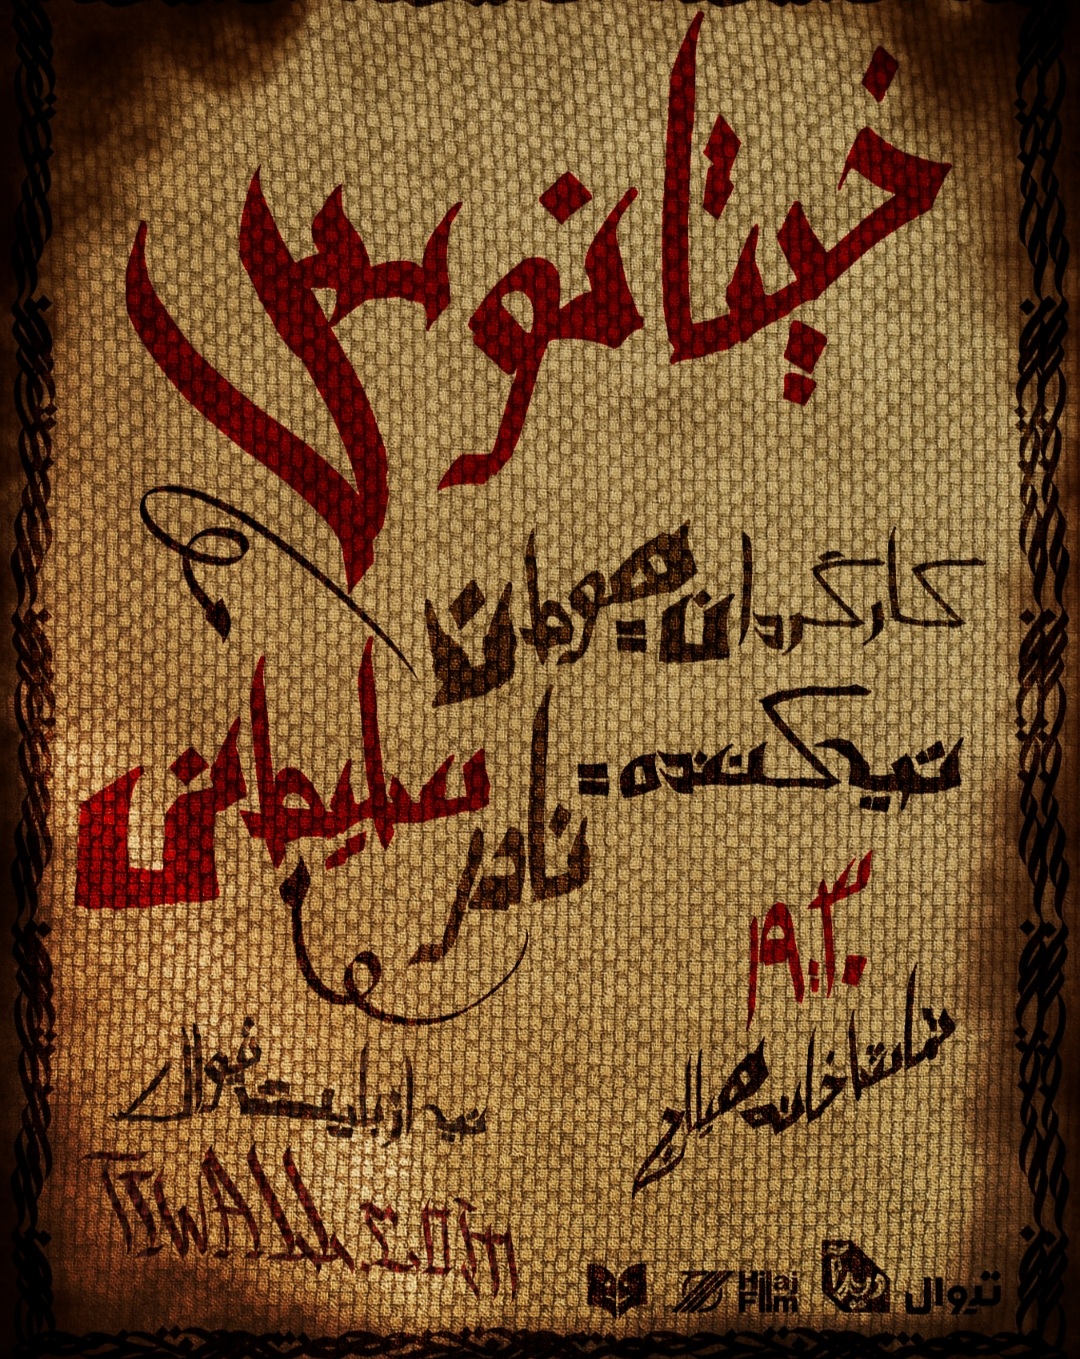 خیتانوس
کارگردان: هومان
تهیه‌کننده:
نادر سلیطی
۱۹:۳۰
تماشاخانه هیلاج
تیوال
TIWALL.COM
Hilaj
Film
تیوال